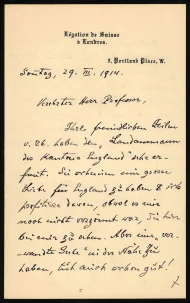 Légation de Suisse
à Londres.
3, Portland Place, W.
Sonntag, 29. III. 1914.
Verehrter Herr Professor,
Ihre freundlichen Zeilen
v. 26. haben den „Landammann
des Kantons England" sehr er-
freut. Sie scheinen eine grosse
Liebe für England zu haben & ich
profitiere davon, obwol es mir
noch nicht vergönnt war, Sie hier
bei mir zu sehen. Aber eine „ver-
wandte Seele" in der Nähe zu
haben, thut auch schon gut!